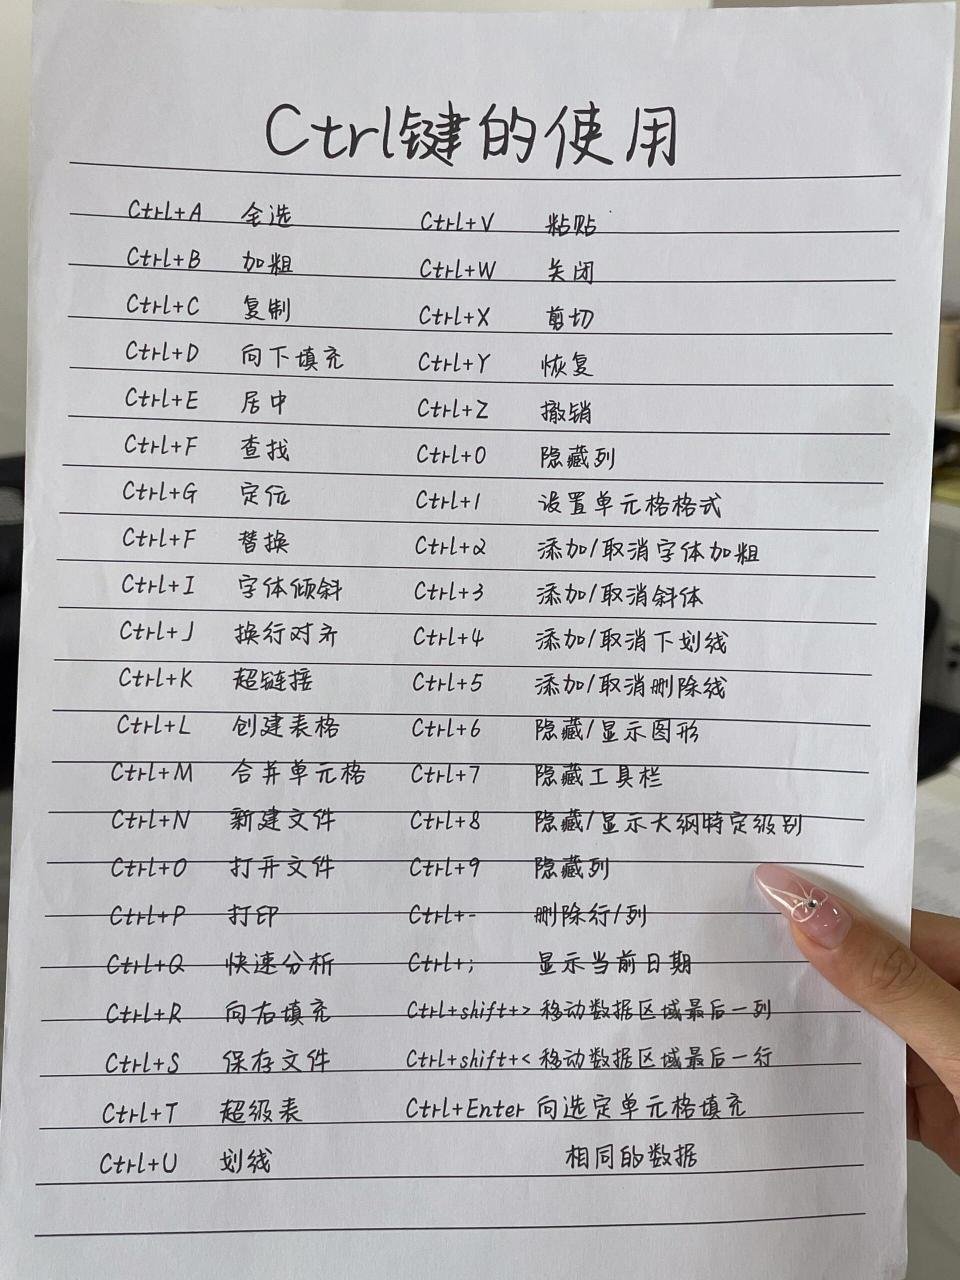 Ctrl键的使用
Ctrl+A 全选 Ctrl+V 粘贴
Ctrl+B 加粗 Ctrl+W 关闭
Ctrl+C 复制 Ctrl+X 剪切
Ctrl+D 向下填充 Ctrl+Y 恢复
Ctrl+E 居中 Ctrl+Z 撤销
Ctrl+F 查找 Ctrl+0 隐藏列
Ctrl+G 定位 Ctrl+1 设置单元格格式
Ctrl+F 替换 Ctrl+2 添加/取消字体加粗
Ctrl+I 字体倾斜 Ctrl+3 添加/取消斜体
Ctrl+J 换行对齐 Ctrl+4 添加/取消下划线
Ctrl+K 超链接 Ctrl+5 添加/取消删除线
Ctrl+L 创建表格 Ctrl+6 隐藏/显示图形
Ctrl+M 合并单元格 Ctrl+7 隐藏工具栏
Ctrl+N 新建文件 Ctrl+8 隐藏/显示大纲特定级别
Ctrl+O 打开文件 Ctrl+9 隐藏列
Ctrl+P 打印 Ctrl+- 删除行/列
Ctrl+Q 快速分析 Ctrl+; 显示当前日期
Ctrl+R 向右填充 Ctrl+shift+> 移动数据区域最后一列
Ctrl+S 保存文件 Ctrl+shift+< 移动数据区域最后一行
Ctrl+T 超级表 Ctrl+Enter 向选定单元格填充
Ctrl+U 划线 相同的数据